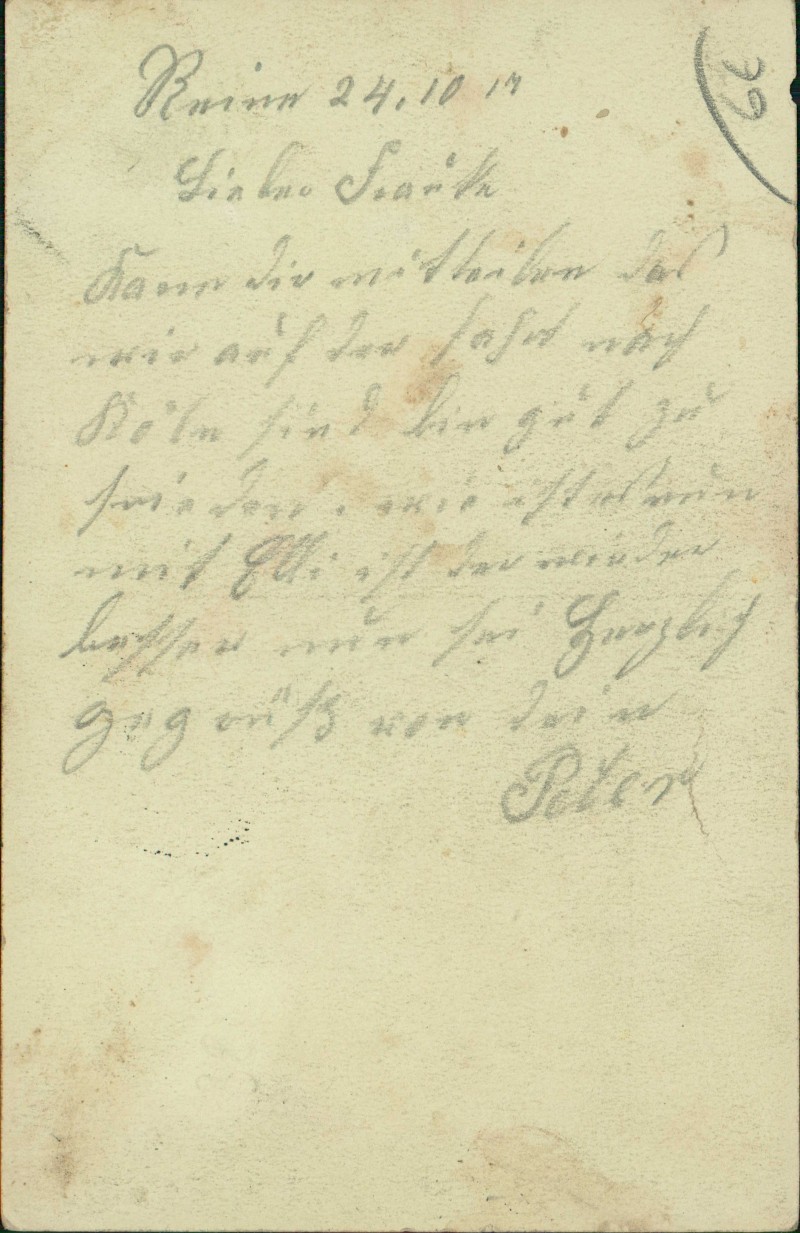 Reine 24.10 17
39
Lieber Franke
Kann dir mitteilen das
wir auf der fahrt nach
Köln sind bin gut zu
frieden. wie ist es nun
mit Elli ist der wieder
besser nun sei Herzlich
gegrüßt von dein
Peter